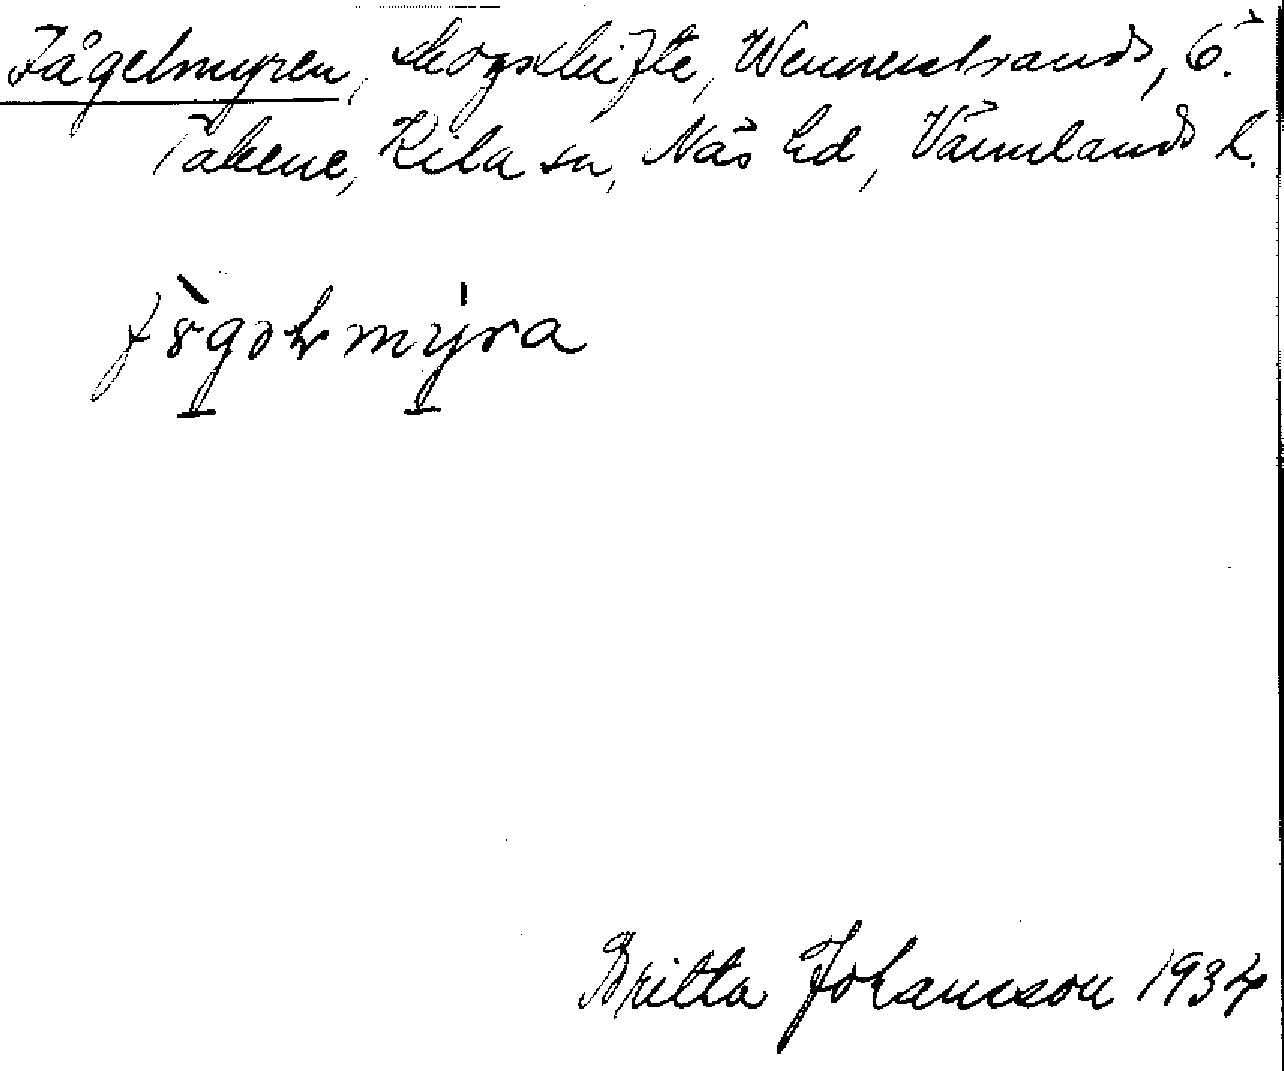 Fågelmyren, skogsskifte, Wennenstrands, Ö.
Takene, Kila sn, Näs hd, Värmlands l.
Britta Johansson 1934